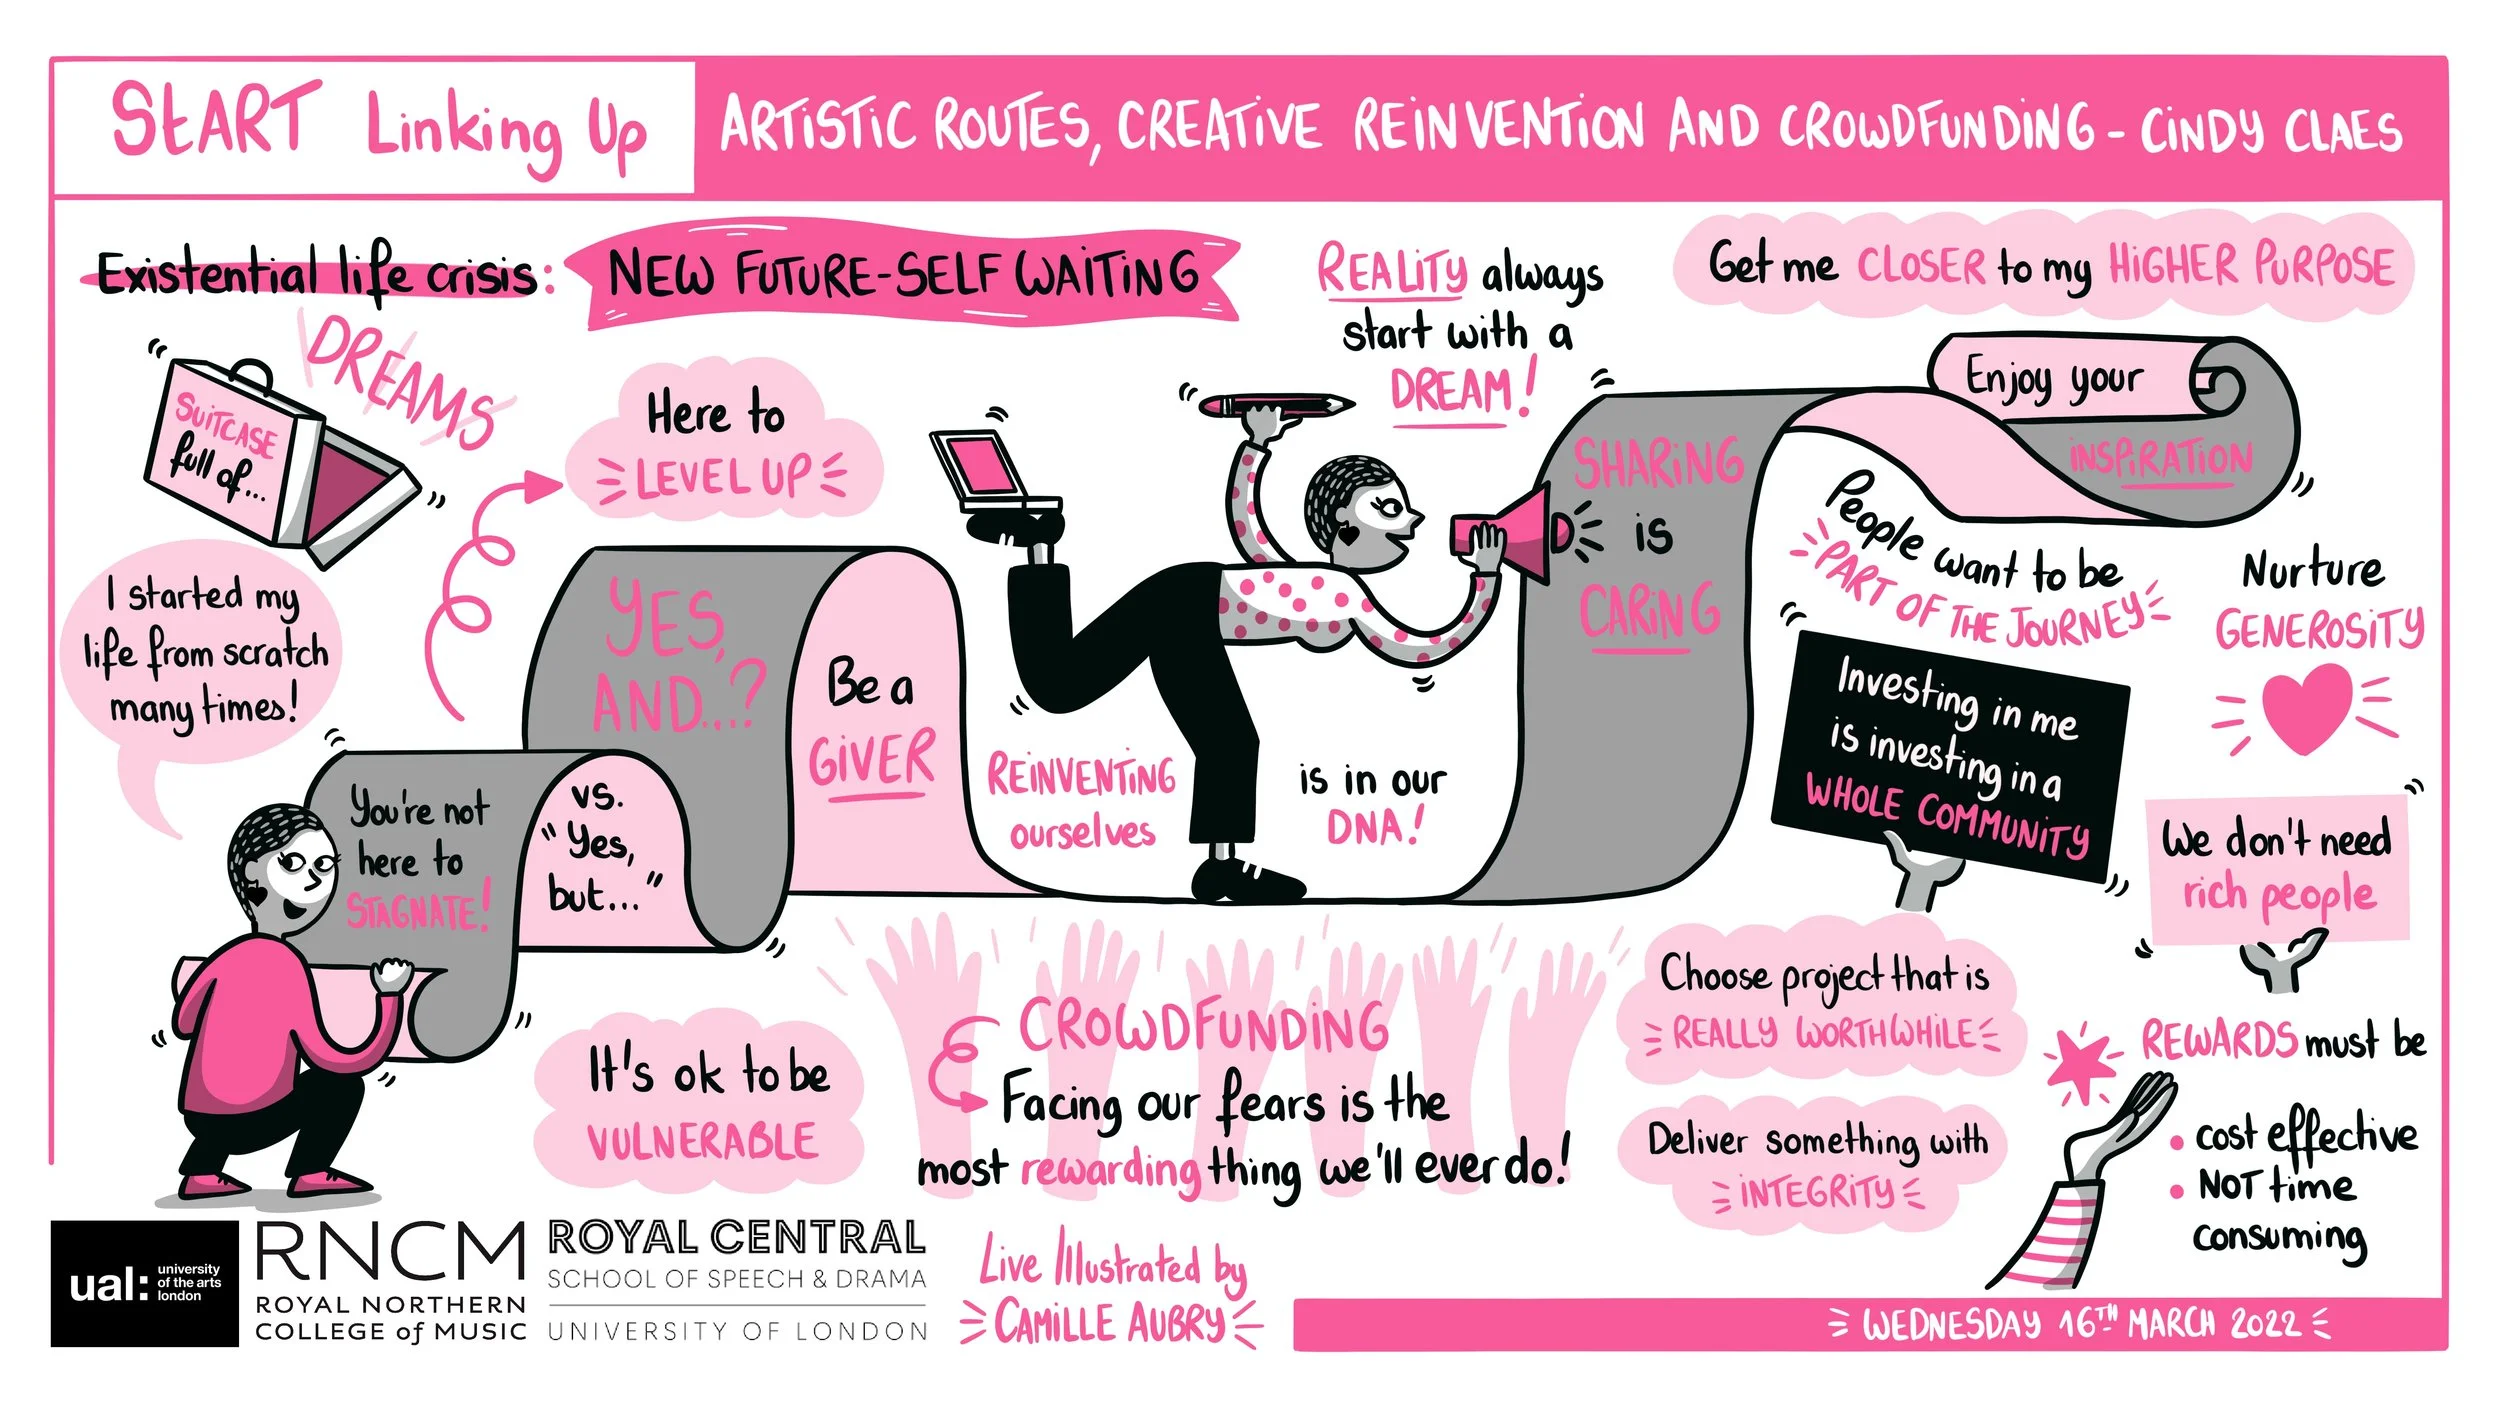 START Linking Up
ARTISTIC ROUTES, CREATIVE REINVENTION AND CROWDFUNDING - CINDY CLAES
Existential life crisis:
NEW FUTURE-SELF WAITING
SUITCASE
full of...
DREAMS
Here to
LEVEL UP
I started my
life from scratch
many times!
You're not
here to
STAGNATE!
vs.
"Yes,
but..."
YES,
AND...?
Be a
GIVER
REINVENTING
ourselves
is in our
DNA!
REALITY always
start with a
DREAM!
SHARING
is
CARING
Get me CLOSER to my HIGHER PURPOSE
Enjoy your
INSPIRATION
People want to be
PART OF THE JOURNEY
Nurture
GENEROSITY
Investing in me
is investing in a
WHOLE COMMUNITY
We don't need
rich people
It's ok to be
VULNERABLE
CROWDFUNDING
Facing our fears is the
most rewarding thing we'll ever do!
Choose project that is
REALLY WORTHWHILE
Deliver something with
INTEGRITY
REWARDS must be
• cost effective
• NOT time
consuming
ual: university
of the arts
london
RNCM
ROYAL NORTHERN
COLLEGE of MUSIC
ROYAL CENTRAL
SCHOOL OF SPEECH & DRAMA
UNIVERSITY OF LONDON
Live Illustrated by
CAMILLE AUBRY
WEDNESDAY 16TH MARCH 2022